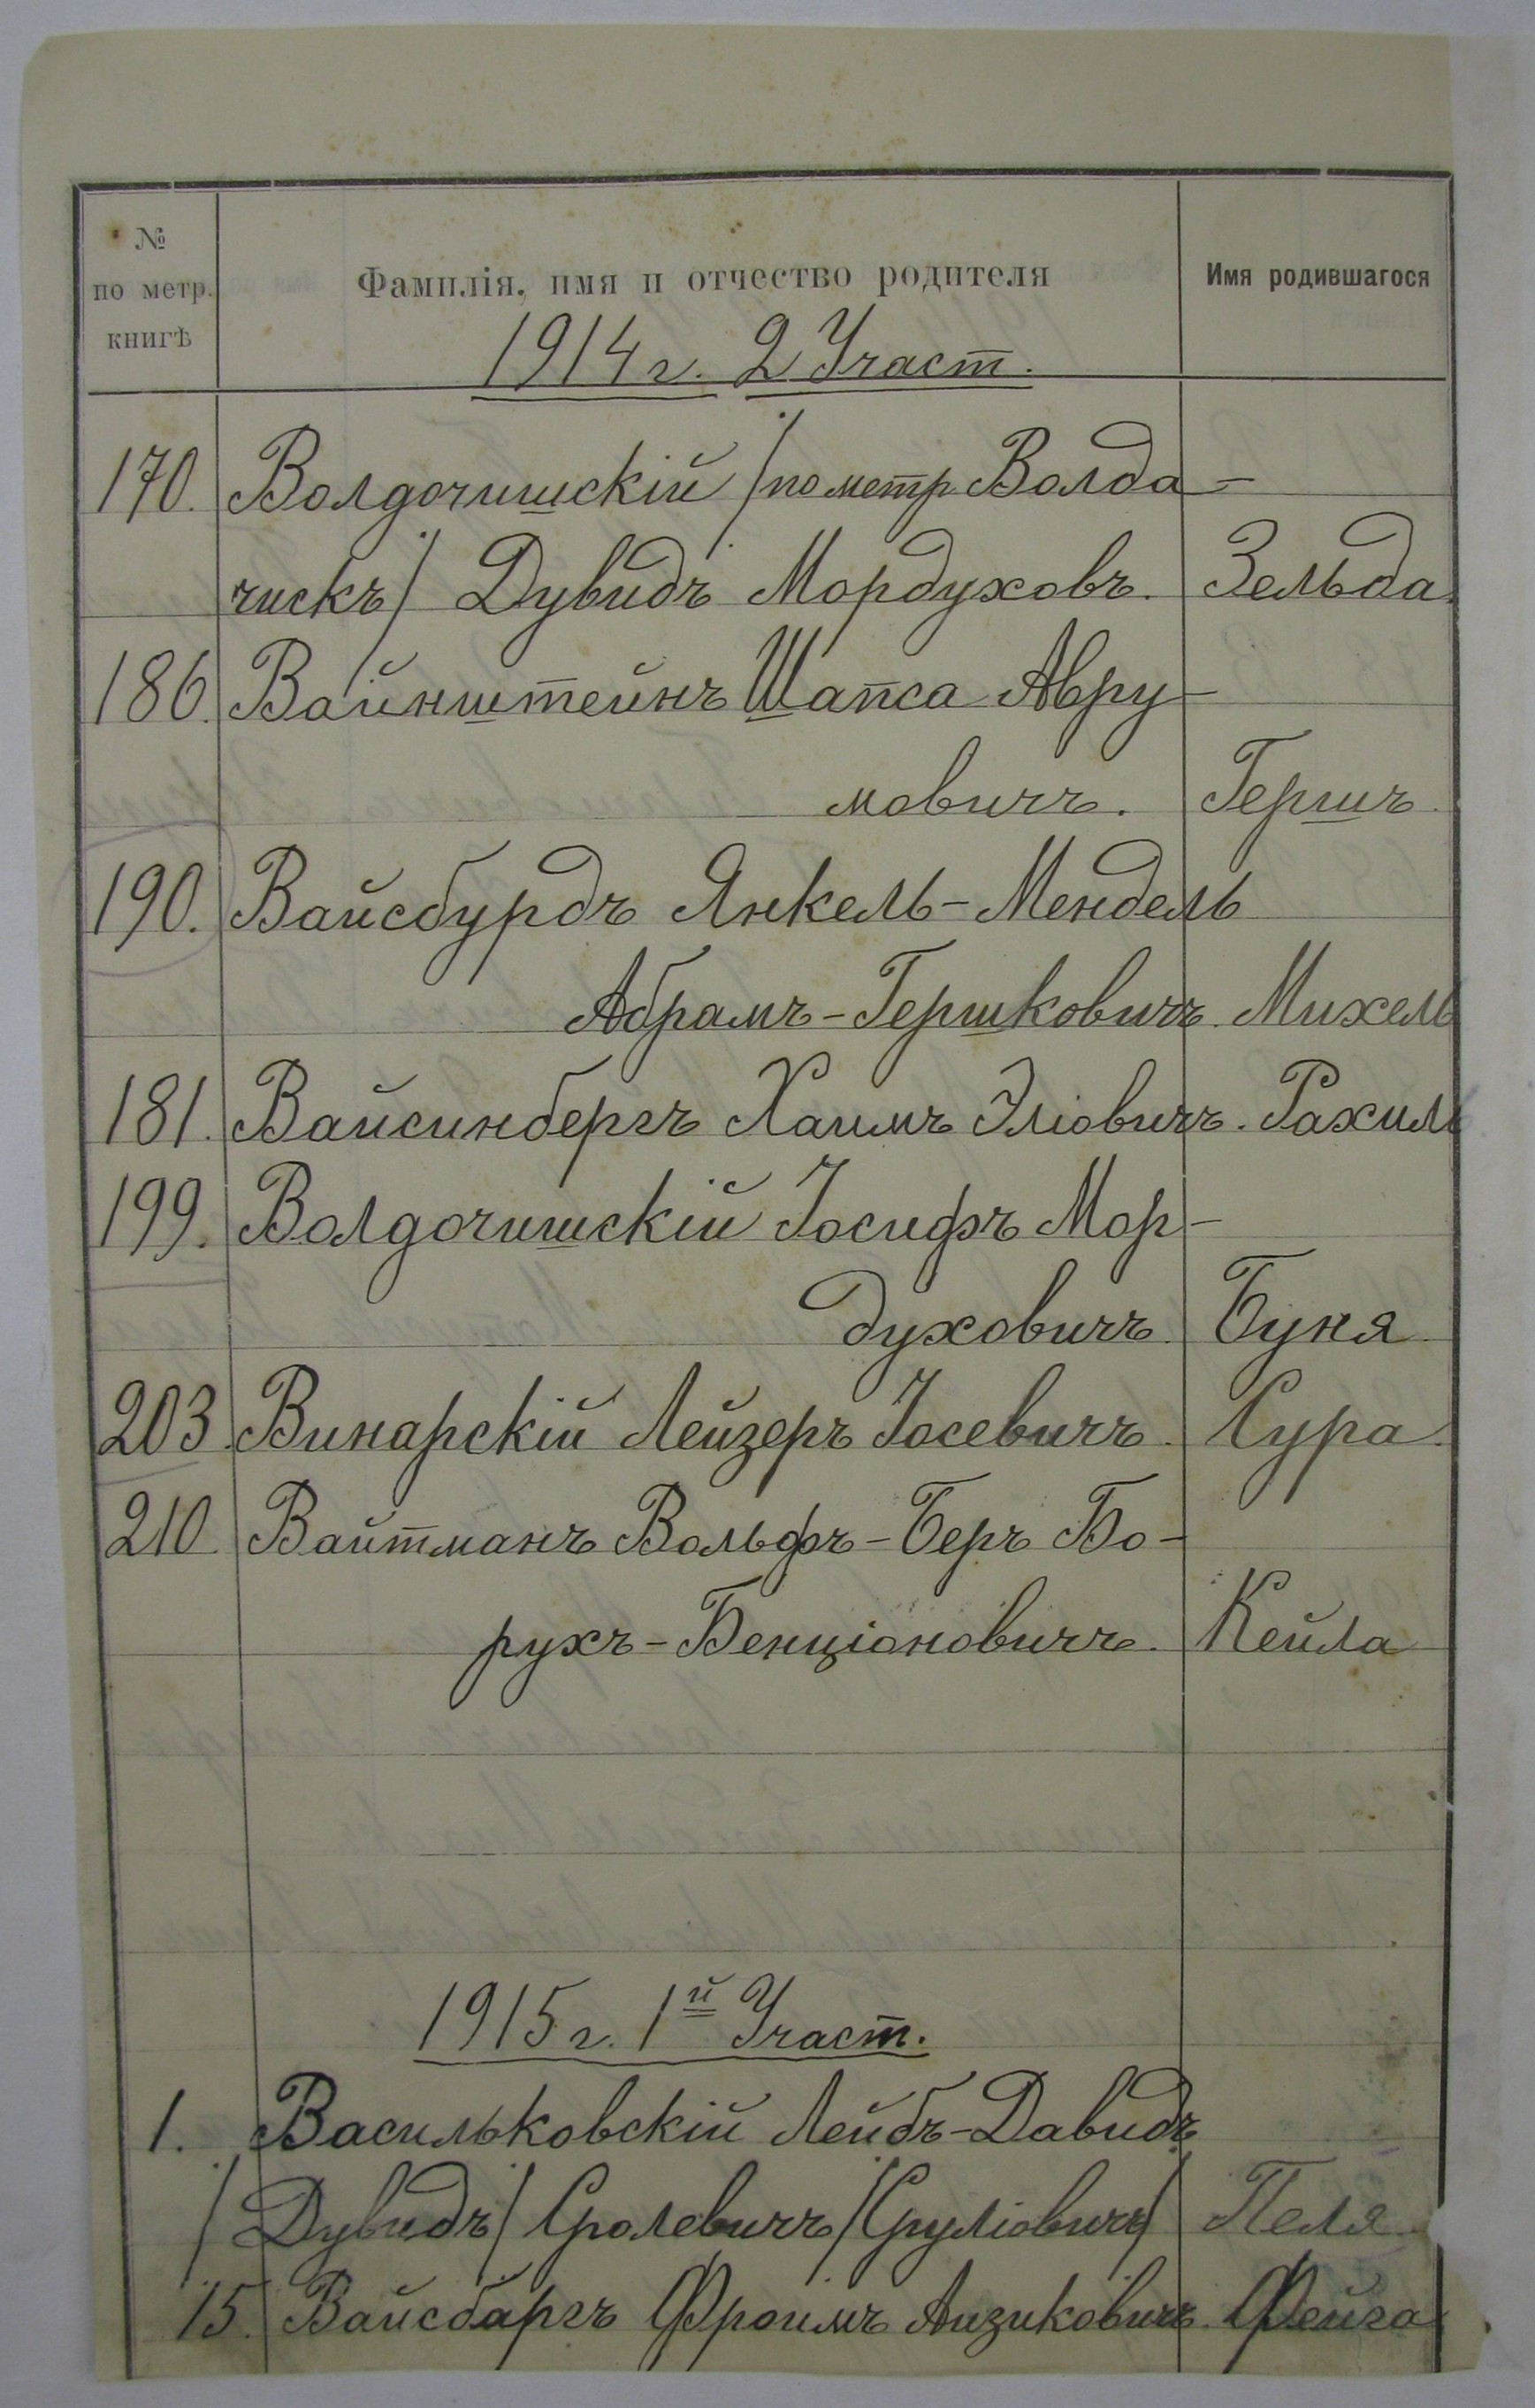 № по метр. книгѣ
Фамилія, имя и отчество родителя
Имя родившагося
1914 г. 2 Участ.
170. Волдочишскій /по метр. Волда-
чискъ/ Дувидъ Мордуховъ. Зельда
186. Вайнштейнъ Шапса Авру-
мовичъ. Гершъ
190. Вайсбурдъ Янкель-Мендель
Абрамъ-Гершковичъ. Михель
181. Вайсинбергъ Хаимъ Эліовичъ. Рахиль
199. Волдочишскій Іосифъ Мор-
духовичъ. Буня
203. Винарскій Лейзеръ Іосевичъ. Сура
210. Вайтманъ Вольфъ-Беръ Бо-
рухъ-Бенціоновичъ. Кейла
1915 г. 1й Участ.
1. Васильковскій Лейбъ-Давидъ
/Дувидъ/ Сролевичъ /Сруліовичъ/ Пеля
15. Вайсбаргъ Фроимъ Аизиковичъ. Фейга